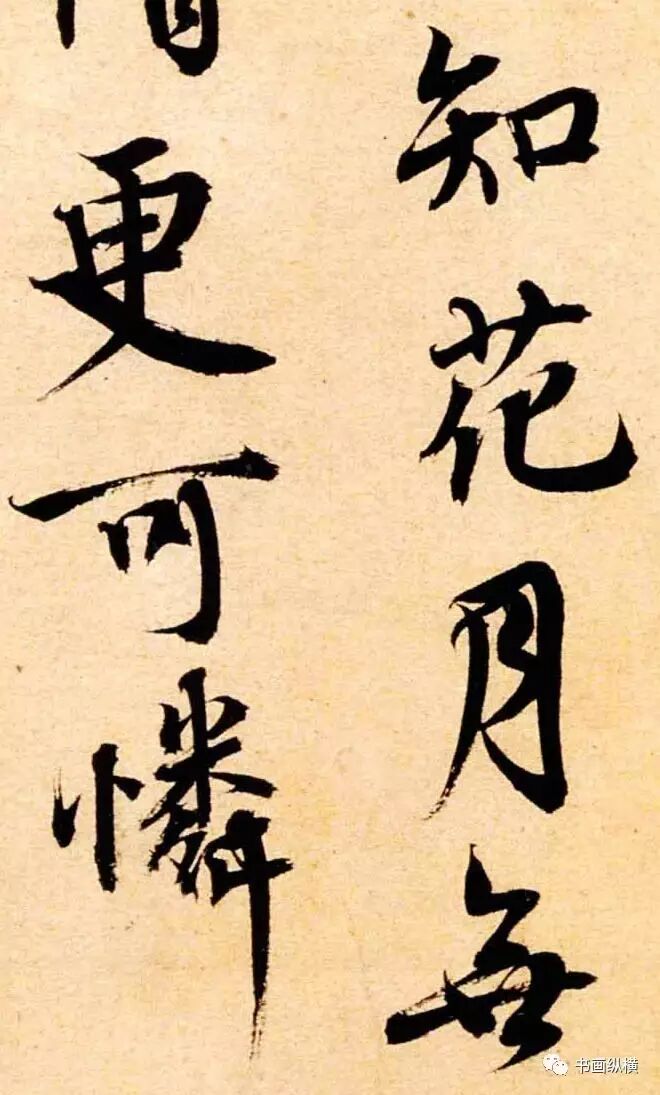 知花月無
更可憐
书画纵横